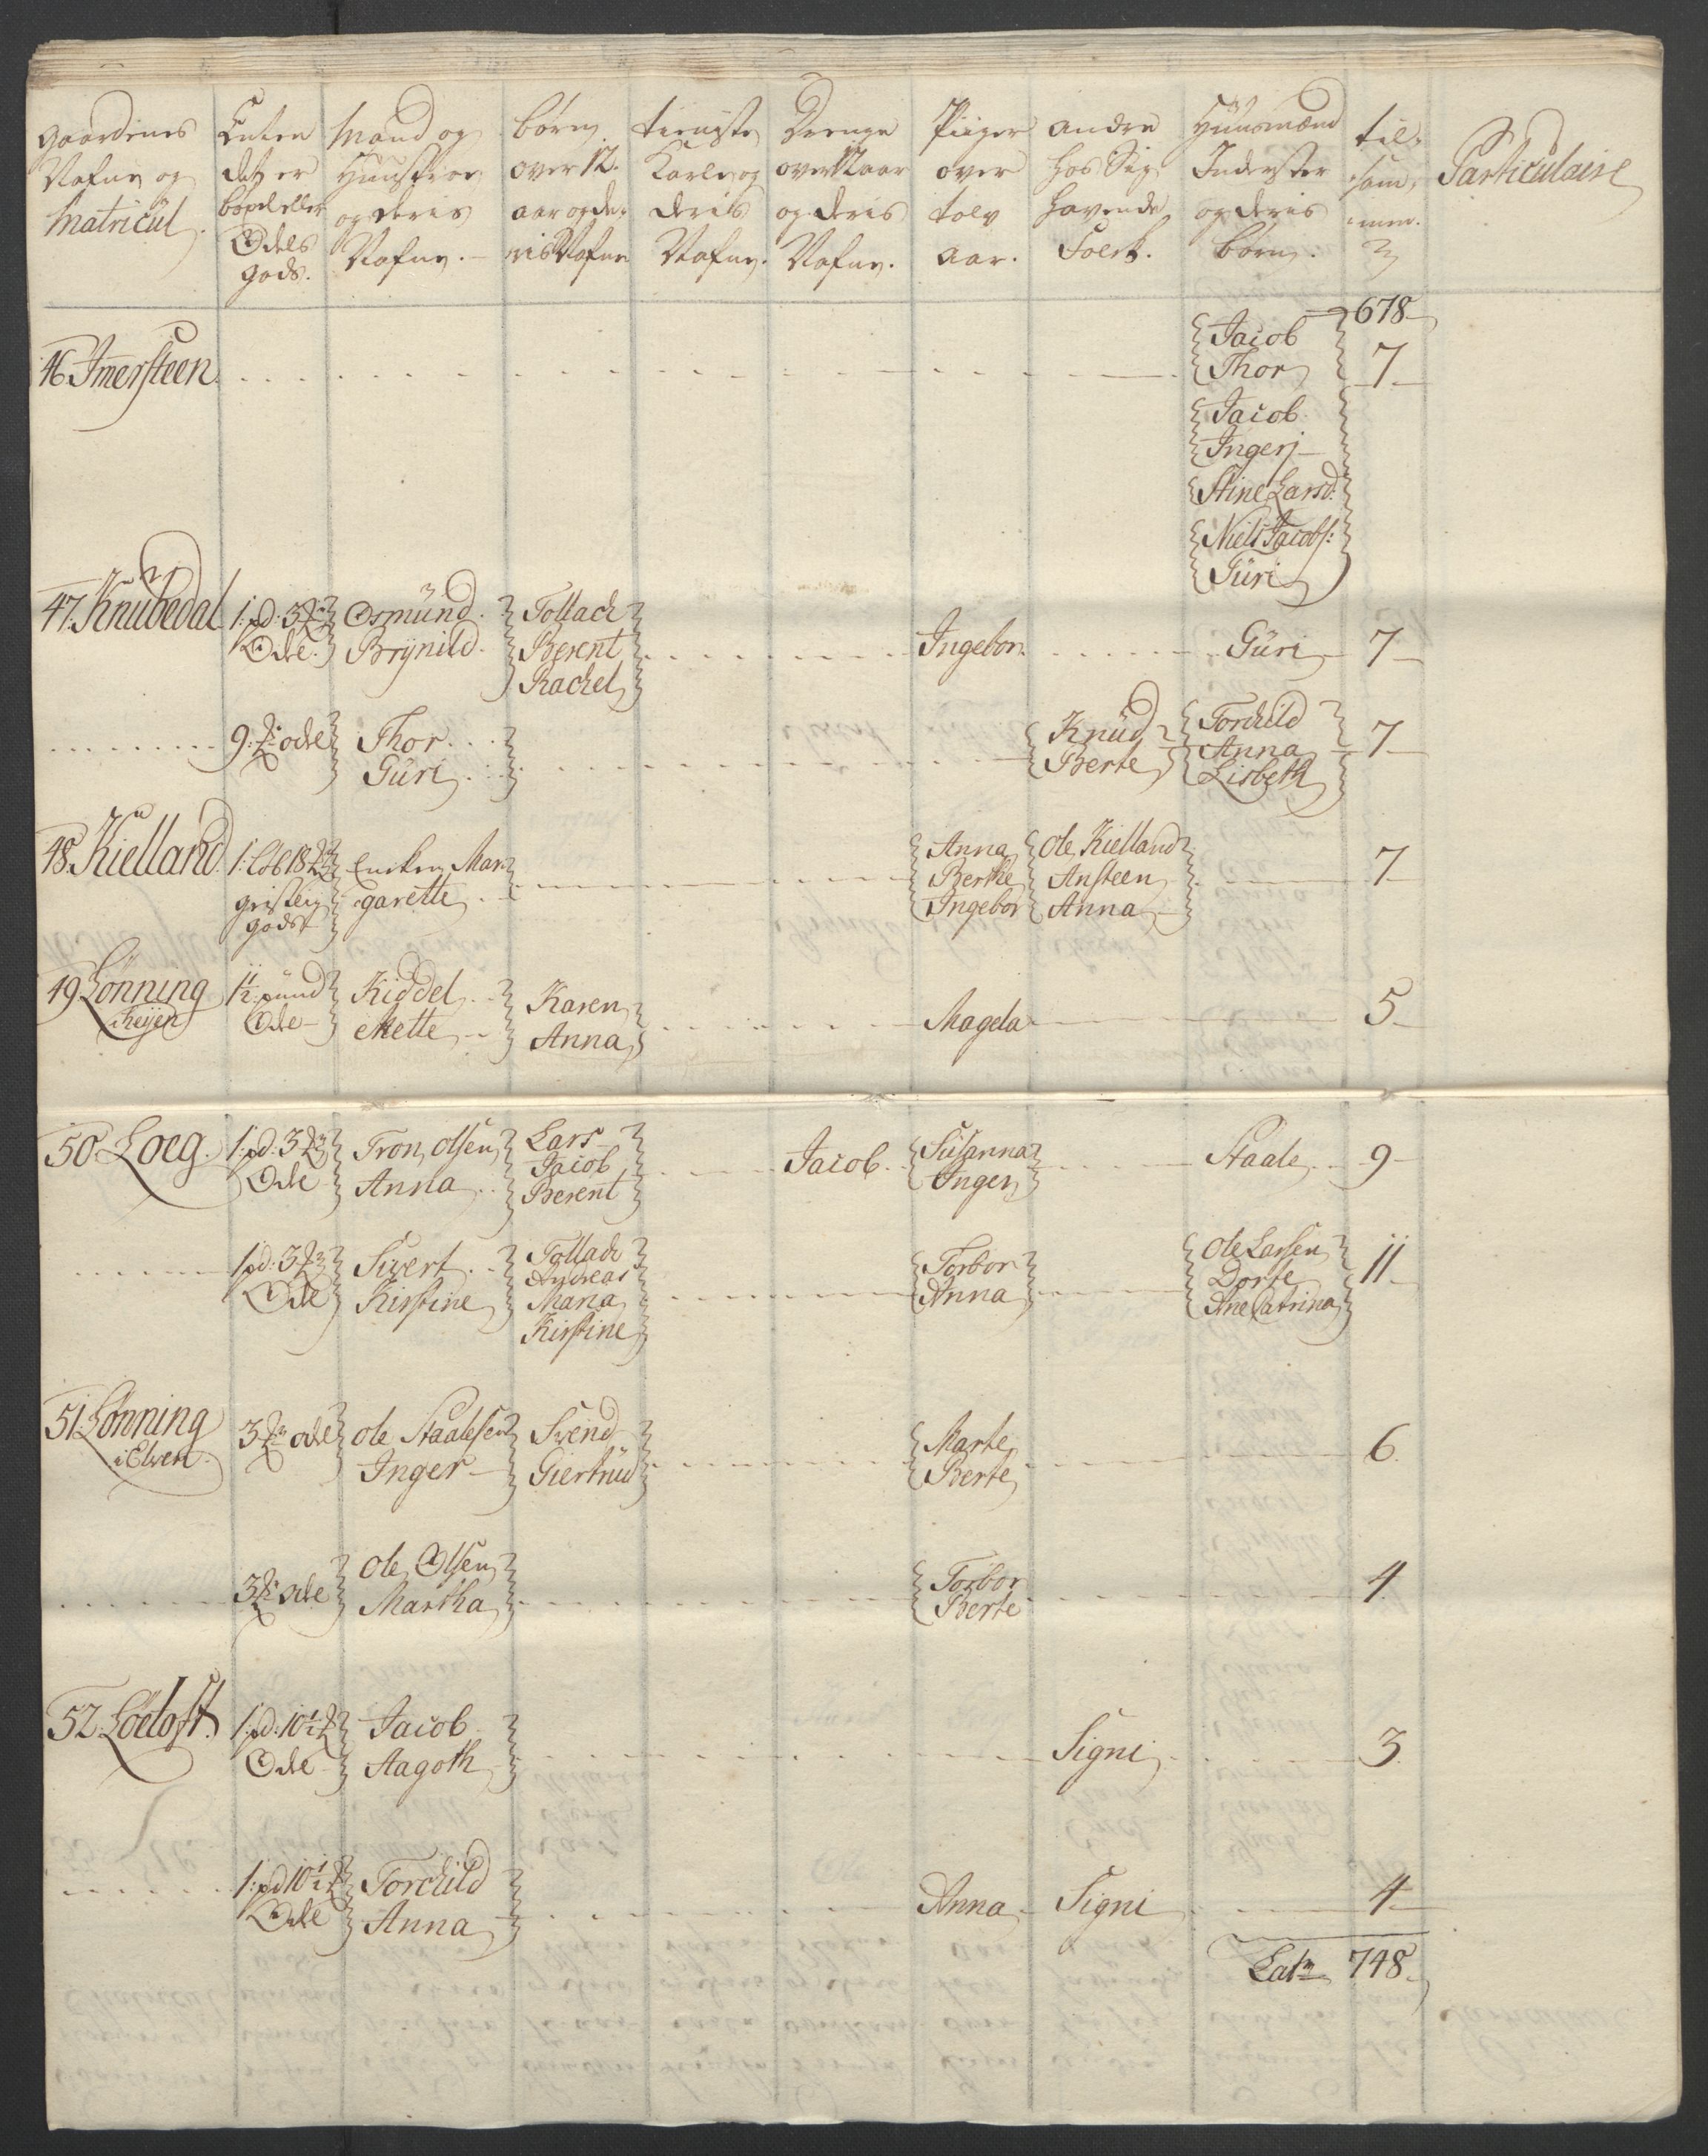 Gaardenes
Nafne og
Matricul.
Enten
det er
böxel eller
Odels
gods.
Mand og
Huustroe
og deris
Nafne.
börn
over 12.
aar og de-
ris Nafne
tieniste
Karle og
deris
Nafne.
Drenge
over 12 aar
og deris
Nafne.
Piiger
over
tolv
aar.
andre
hos Sig
havende
Folck.
Huusmænd
Inderster
og deris
börn.
til-
sam-
men.
Particulaire
678
46. Imersteen
Jacob
Thor
7
Jacob
Ingerj
Stine Larsd:
Niels Jacobs:
Güri
47. Knubedal
1: pd: 3
Odel
Osmünd
Brÿnild
Tollack
Berent
Rachel
Ingebor
Güri
7
9 odel
Thor
Güri
Knüd
Berte
Torchild
Anna
Lisbeth
7
48. Kielland
1: 18
gods
Encken Mar-
garette
Anna
Berthe
Ingebor
Ole Kielland
Ansteen
Anna
7
49 Lönning
1½ pünd
Ode
Kiddel
Mette
Karen
Anna
Magela
5
50. Loeg
1: pd: 3
Odel
Tron Olsen
Anna
Lars
Jacob
Berent
Jacob
Susanna
Inger
Staale
9
1 pd: 3
Odel
Sivert
Kirstine
Tollack
Andreas
Maria
Kirstine
Torbor
Anna
Ole Larsen
Dorte
Ane Catrina
11
51. Lönning
i Elven
3 odel
Ole Staalesen
Inger
Svend
Giertrud
Marte
Berte
6
3 odel
Ole Olsen
Martha
Torbor
Berte
4
52. Lödoft
1: pd: 10½
Odel
Jacob
Aagoth
Signi
3
1: pd 10½
Odel
Torchild
Anna
Anna
Signi
4
Lat 748